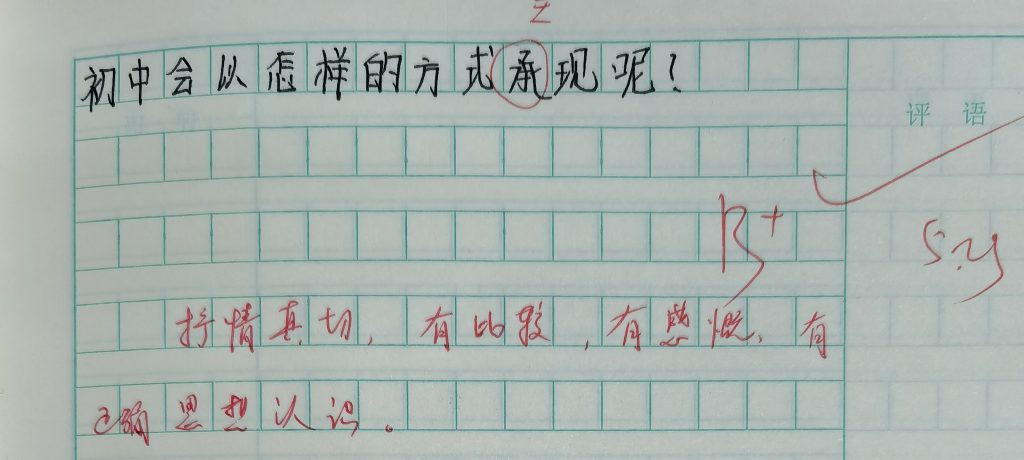 初中会以怎样的方式承现呢？
评语
B+
5.25
抒情真切，有比较，有感慨，有
正确思想认识。